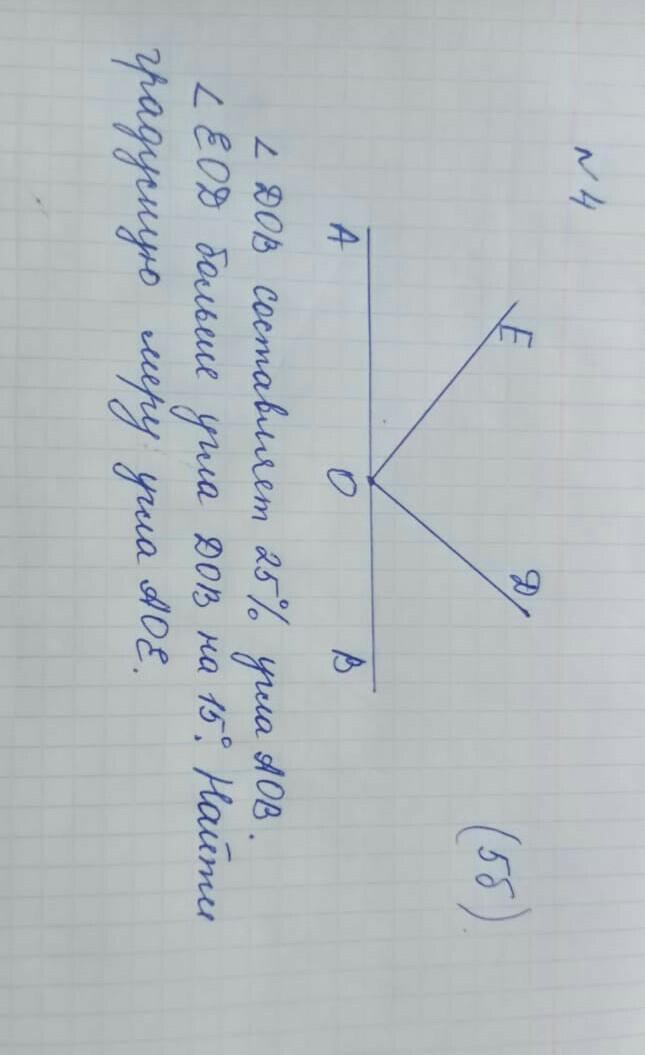 №4
(5б)
E
D
A
O
B
∠DOB составляет 25% угла AOB.
∠EOD больше угла DOB на 15°. Найти
градусную меру угла AOE.